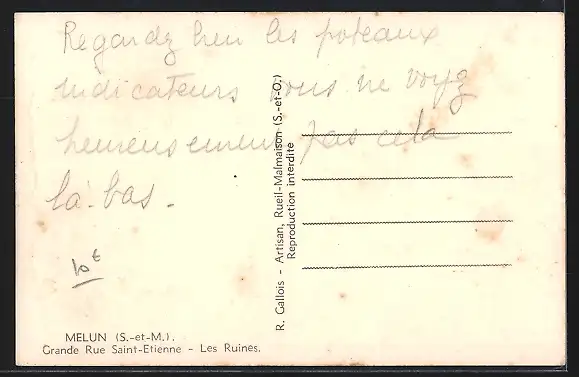 Regardz bien les poteaux
indicateurs vous ne voyez
heureusement pas cela
là-bas.
10€
MELUN (S.-et-M.).
Grande Rue Saint-Etienne - Les Ruines.
R. Gallois - Artisan, Rueil-Malmaison (S.-et-O.)
Reproduction interdite